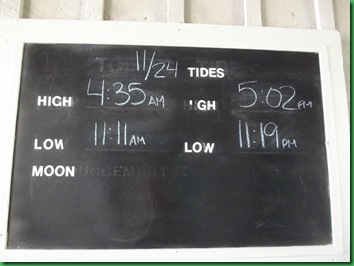 11/24 TIDES
HIGH 4:35 AM HGH 5:02 PM
LOW 11:11 AM LOW 11:19 PM
MOON UNCEMENT